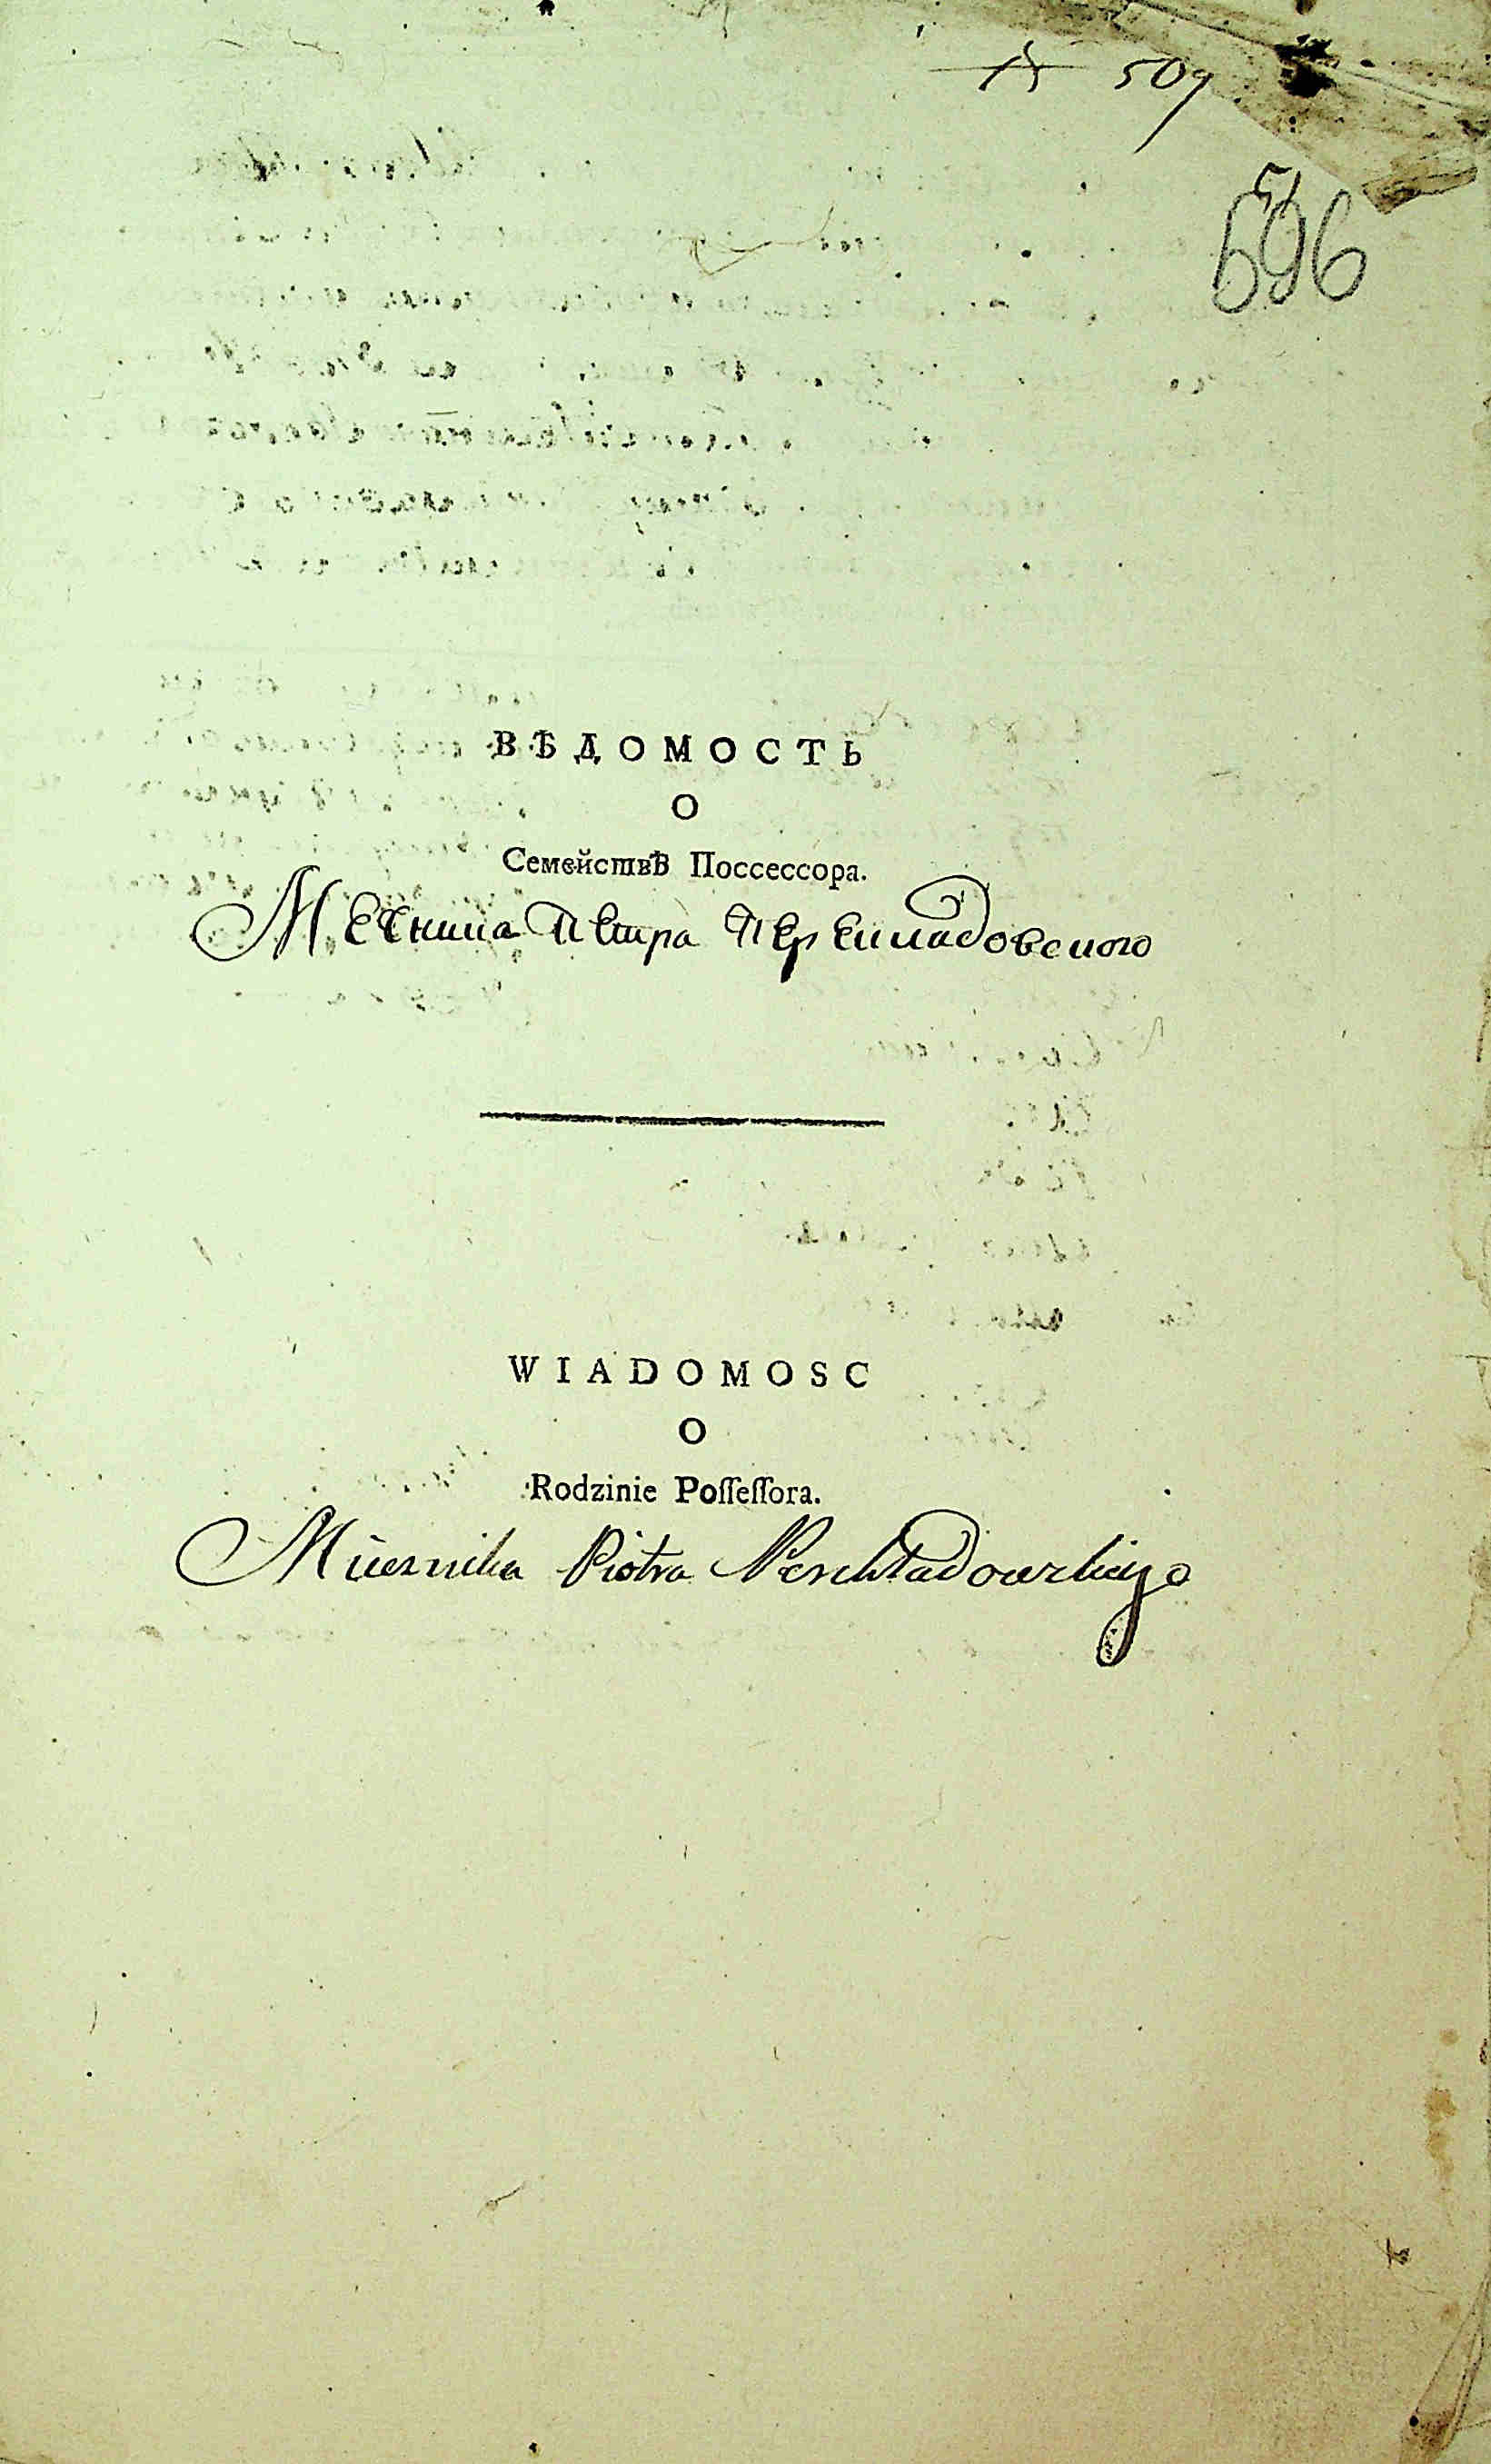 15 509
596
ВѢДОМОСТЬ
О
Семействѣ Поссессора.
Мечника Петра Перекладовского
WIADOMOSC
O
Rodzinie Poſſeſſora.
Miecznika Piotra Perekładowskiego